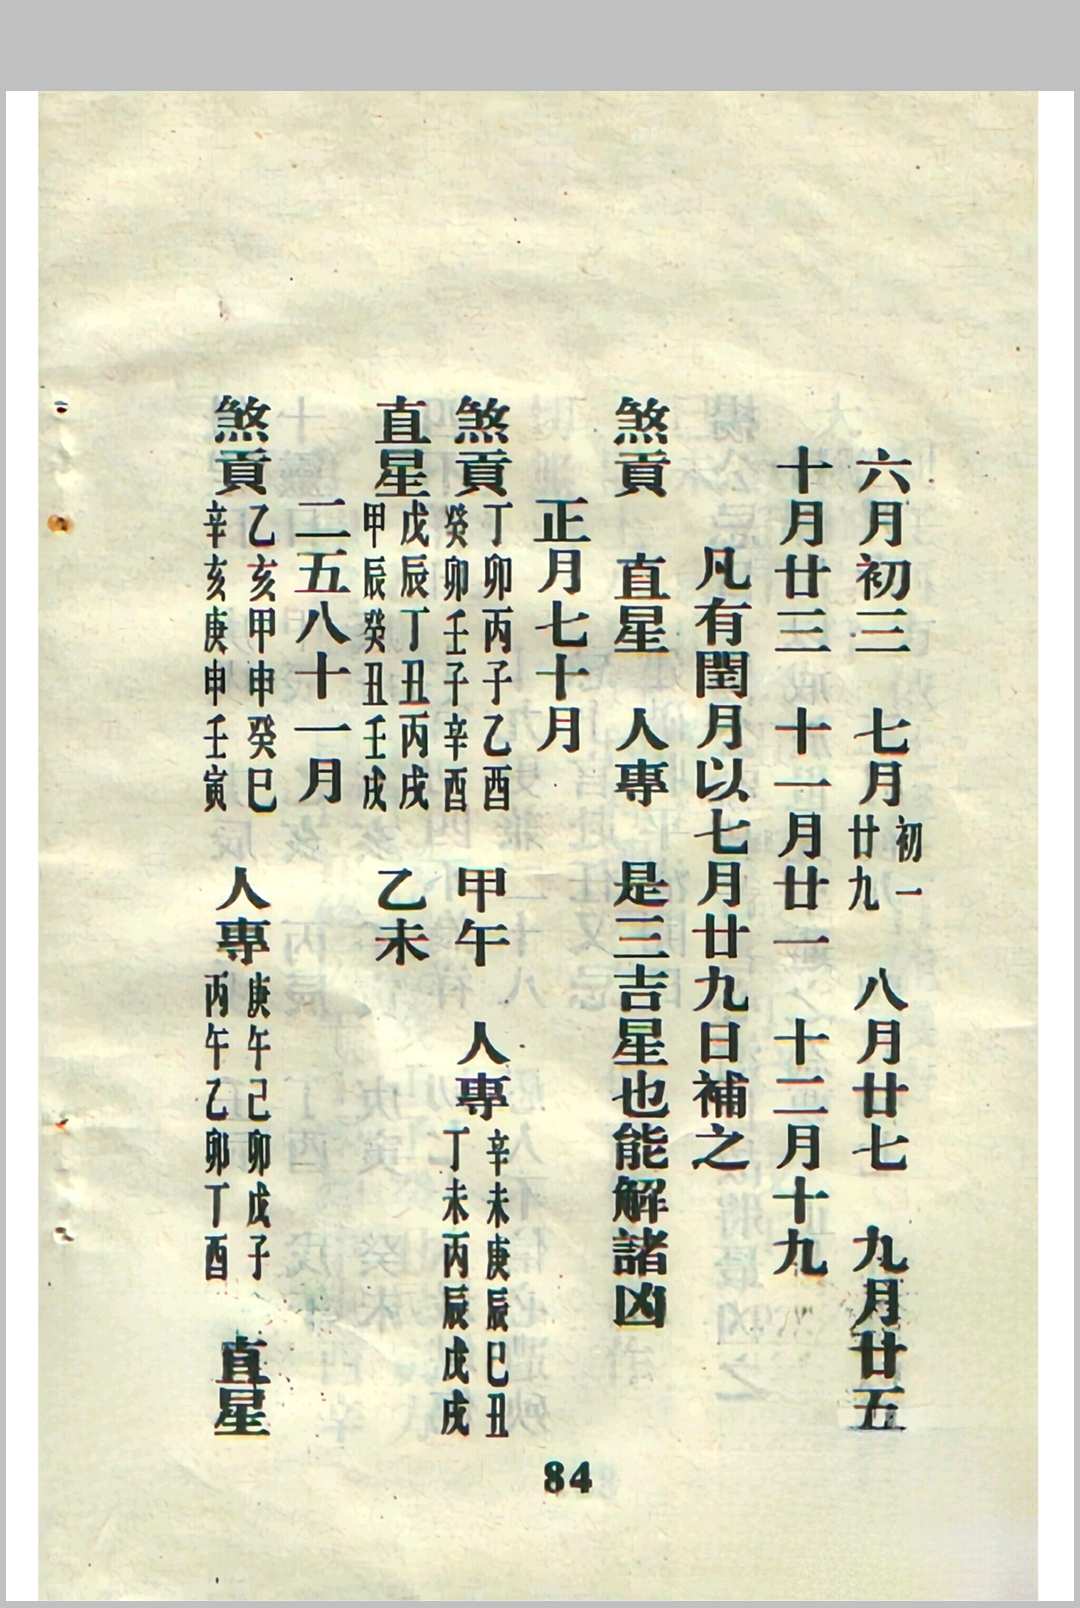 六月初三　七月初一廿九　八月廿七　九月廿五
十月廿三　十一月廿一　十二月十九
凡有閏月以七月廿九日補之
煞貢　直星　人專　是三吉星也能解諸凶
正月七十月
煞貢丁卯丙子乙酉癸卯壬子辛酉　甲午　人專辛未庚辰己丑丁未丙辰戊戌
直星戊辰丁丑丙戌甲辰癸丑壬戌　乙未
二五八十一月
煞貢乙亥甲申癸巳辛亥庚申壬寅　人專庚午己卯戊子丙午乙卯丁酉　直星
84